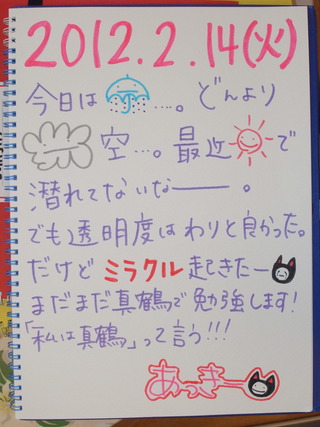 2012.2.14(火)
今日は ....。どんより
空...。最近 で
潜れてないなー。
でも透明度はわりと良かった。
だけどミラクル起きたー
まだまだ真鶴で勉強します!
「私は真鶴」って言う!!!
あっきー